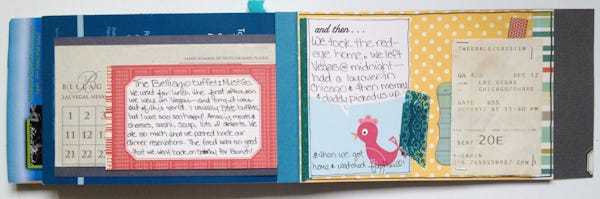 MARK NUMBER OF SPOTS OR WAYS PLAYED
BELLAGIO
LAS VEGAS, NEVADA
1 2 3 4
11 12 13 14
21 22 23
The Bellagio buffet: Must Go.
We went for lunch the first afternoon
we were in Vegas — and
out of this world. I usually hate buffets,
but I was soo happy! Amazing meats &
cheeses, sushi, soup, lots of deserts. We
ate so much that we pushed back our
dinner reservations. The food was so good
that we went back on Sunday for Brunch!
and then...
We took the red-
eye home. We left
Vegas @ midnight —
had a layover in
chicago & then mommy
& daddy picked us up.
& when we got
home & watched
TWREDALE/KRISTIN
UA 476 DEC 12
LAS VEGAS
CHICAGO/OHARE
GATE D55
DEPARTS AT 11:40 PM
SEAT 20E
Y-CABIN